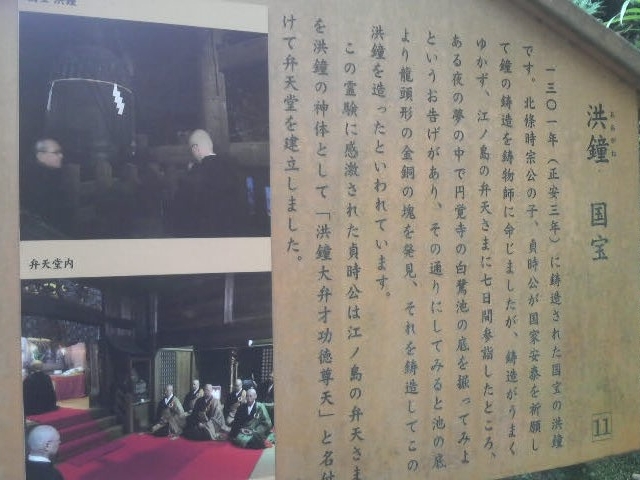 洪鐘 国宝
一三〇一年（正安三年）に鋳造された国宝の洪鐘
です。北條時宗公の子、貞時公が国家安泰を祈願し
て鐘の鋳造を鋳物師に命じましたが、鋳造がうまく
ゆかず、江ノ島の弁天さまに七日間参詣したところ、
ある夜の夢の中で円覚寺の白鷺池の底を掘ってみよ
というお告げがあり、その通りにしてみると池の底
より龍頭形の金銅の塊を発見、それを鋳造してこの
洪鐘を造ったといわれています。
この霊験に感激された貞時公は江ノ島の弁天さま
を洪鐘の神体として「洪鐘大弁才功徳尊天」と名付
けて弁天堂を建立しました。
11
洪鐘
弁天堂内